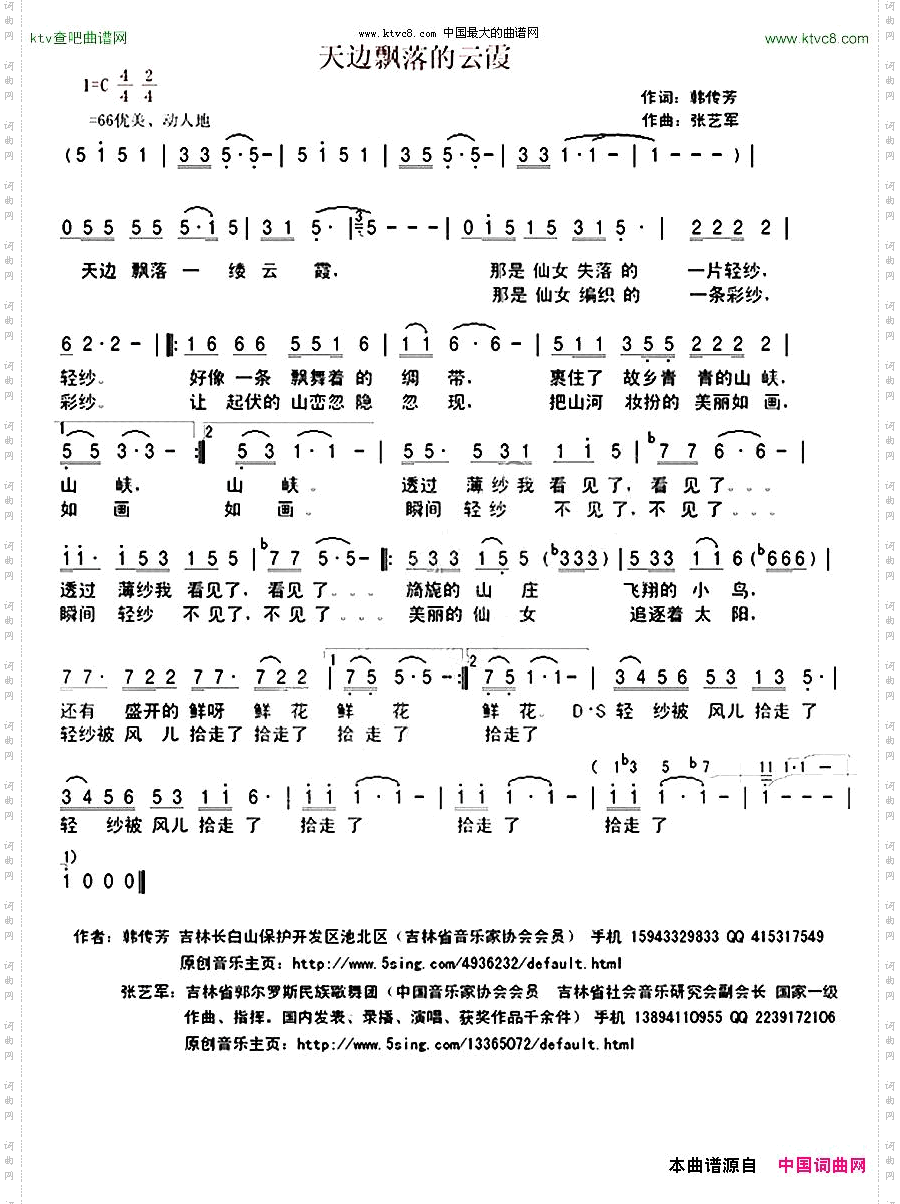 www.ktvc8.com 中国最大的曲谱网
ktv查吧曲谱网
www.ktvc8.com
天边飘落的云霞
1=C 4/4 2/4
=66优美、动人地
作词：韩传芳
作曲：张艺军
(5 i 5 1 | 3 3 5·5- | 5 i 5 1 | 3 5 5·5- | 3 3 1·1- | 1--- ) |
0 5 5 5 5 5·i 5 | 3 1 5· | 3 5--- | 0 i 5 1 5 3 1 5· | 2 2 2 2 |
天边 飘落 一 绫 云 霞， 那是 仙女 失落 的 一片轻纱，
那是 仙女 编织 的 一条彩纱，
6 2·2- |: 1 6 6 6 5 5 1 6 | 1 1 6·6- | 5 1 1 3 5 5 2 2 2 2 |
轻纱。 好像 一条 飘舞着 的 绸 带， 裹住了 故乡青 青的山 峡，
彩纱。 让 起伏的 山峦忽 隐 忽 现， 把山河 妆扮的 美丽如 画，
1 5 5 3·3- :| 2 5 3 1·1- | 5 5· 5 5 3 1 1 1 i 5 | b7 7 6·6- |
山 峡， 山 峡。 透过 薄纱我 看 见了，看 见 了。。。
如 画 如 画。 瞬间 轻纱 不 见了，不 见 了。。。
i i· i 5 3 1 5 5 | b7 7 5·5- |: 5 3 3 1 5 5 (b3 3 3) | 5 3 3 1 1 6 (b6 6 6) |
透过 薄纱我 看见了，看见 了。。。 旖旎的 山 庄 飞翔的 小 鸟，
瞬间 轻纱 不见了，不见 了。。。 美丽的 仙 女 追逐着 太 阳，
7 7· 7 2 2 7 7· 7 2 2 | 1 7 5 5·5- :| 2 7 5 1·1- | 3 4 5 6 5 3 1 3 5· |
还有 盛开的 鲜呀 鲜 花 鲜 花 鲜 花。 D·S 轻 纱被 风儿 拾走了
轻纱被 风 儿 拾走了 拾走了 拾 走 了 拾走了
( 1 b3 5 b7 11 1·1 -
3 4 5 6 5 3 i i 6· | i i 1·1- | i i 1·1- | i i 1·1- | i--- |
轻 纱被 风儿 拾走 了 拾走 了 拾走 了 拾走 了
1)
i 0 0 0 ‖
作者：韩传芳 吉林长白山保护开发区池北区（吉林省音乐家协会会员） 手机 15943329833 QQ 415317549
原创音乐主页：http://www.5sing.com/4936232/default.html
张艺军：吉林省郭尔罗斯民族歌舞团（中国音乐家协会会员 吉林省社会音乐研究会副会长 国家一级
作曲、指挥。国内发表、录播、演唱、获奖作品千余件） 手机 13894110955 QQ 2239172106
原创音乐主页：http://www.5sing.com/13365072/default.html
本曲谱源自 中国词曲网